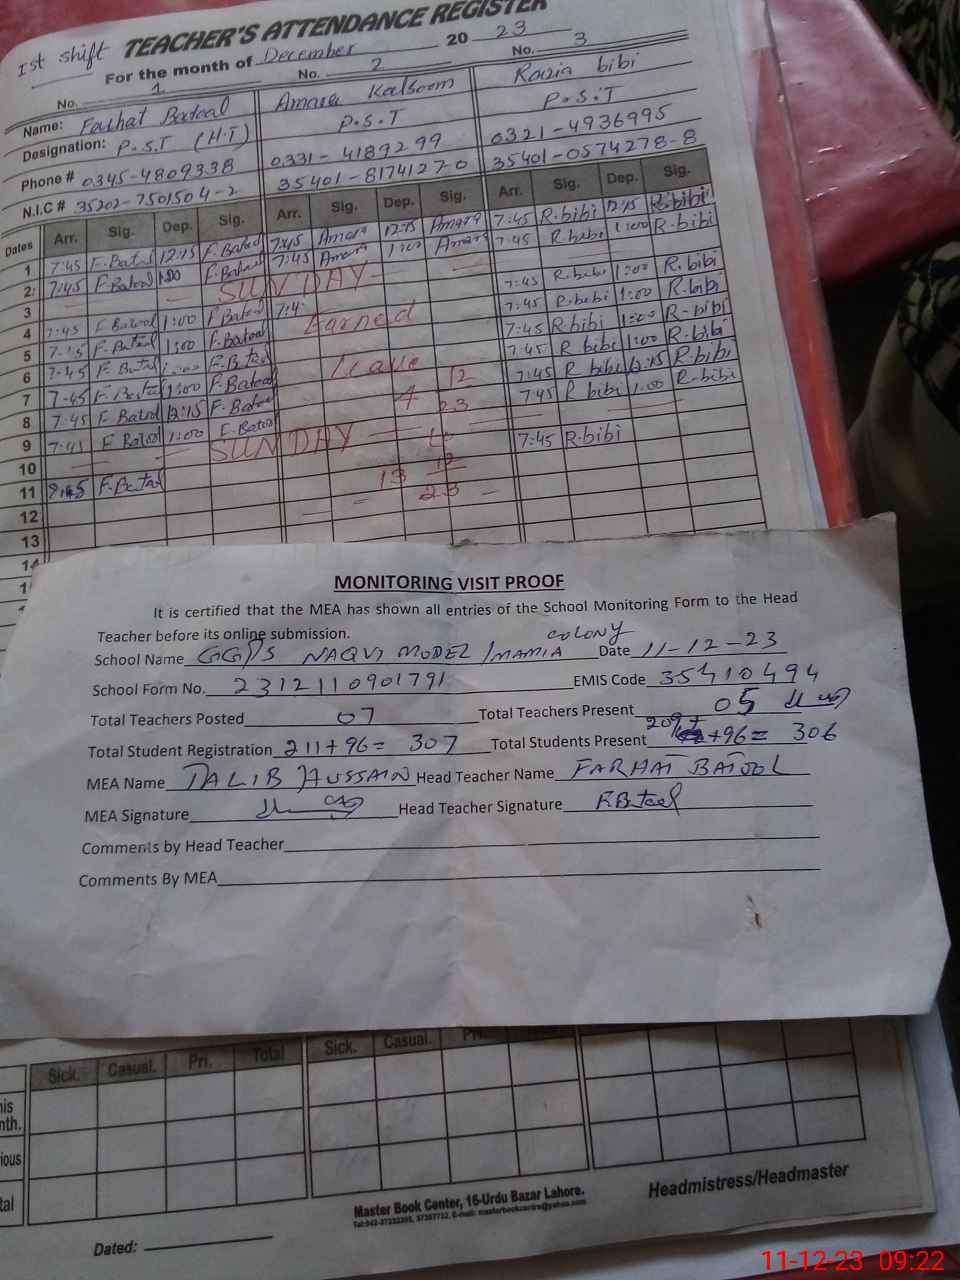 1st shift TEACHER'S ATTENDANCE REGISTER
For the month of December 20 23
No. 1 No. 2 No. 3
Name: Farhat Batool Amara Kalsoom Razia bibi
Designation: P.S.T (H.T) P.S.T P.S.T
Phone # 0345-4809338 0331-4189299 0321-4936995
N.I.C # 35202-7501504-2 35401-8174127-0 35401-0574278-8
Dates Arr. Sig. Dep. Sig. Arr. Sig. Dep. Sig. Arr. Sig. Dep. Sig.
1 7:45 F.Batool 12:15 F.Batool 7:45 Amara 12:15 Amara 7:45 R.bibi 12:15 R.bibi
2 7:45 F.Batool 1:00 F.Batool 7:45 Amara 1:00 Amara 7:45 R.bibi 1:00 R.bibi
3 SUNDAY
4 7:45 F Batool 1:00 F Batool 7:4 Earned 7:45 R.bibi 1:00 R.bibi
5 F.Batool 1:00 F.Batool 7:45 R.bibi 1:00 R.bibi
6 7:45 F.Batool F.Batool Leave 7:45 R.bibi 1:00 R-bibi
7 7-45 F.Batool 1:00 F-Batool 4 12 7:45 R bibi 1:00 R.bibi
8 7:45 F Batool 12:15 F-Batool 23 7:45 R bibi 12:15 R.bibi
9 7:45 F Batool 1:00 F-Batool 7:45 R bibi 1:00 R-bibi
10 SUNDAY
11 F-Batool 13 12 23 7:45 R.bibi
12
13
MONITORING VISIT PROOF
It is certified that the MEA has shown all entries of the School Monitoring Form to the Head
Teacher before its online submission.
School Name GGPS NAQVI MODEL IMAMIA COLONY Date 11-12-23
School Form No. 2312110901791 EMIS Code 35410494
Total Teachers Posted 07 Total Teachers Present 05
Total Student Registration 211+96= 307 Total Students Present 209+ +96= 306
MEA Name TALIB HUSSAIN Head Teacher Name FARHAT BATOOL
MEA Signature Head Teacher Signature F.Batool
Comments by Head Teacher
Comments By MEA
Sick. Casual. Pri. Total Sick. Casual. Pri.
Master Book Center, 16-Urdu Bazar Lahore.
Headmistress/Headmaster
Dated:
11-12-23 09:22